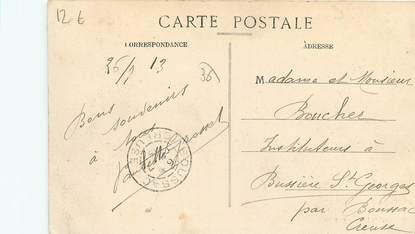 12 €
CARTE POSTALE
CORRESPONDANCE
ADRESSE
13
36
Bons
souvenirs
à tous
Madame et Monsieur
Boucher
Instituteurs à
Bussière St Georges
par Boussac
Creuse
BOUSSAC
CREUSE